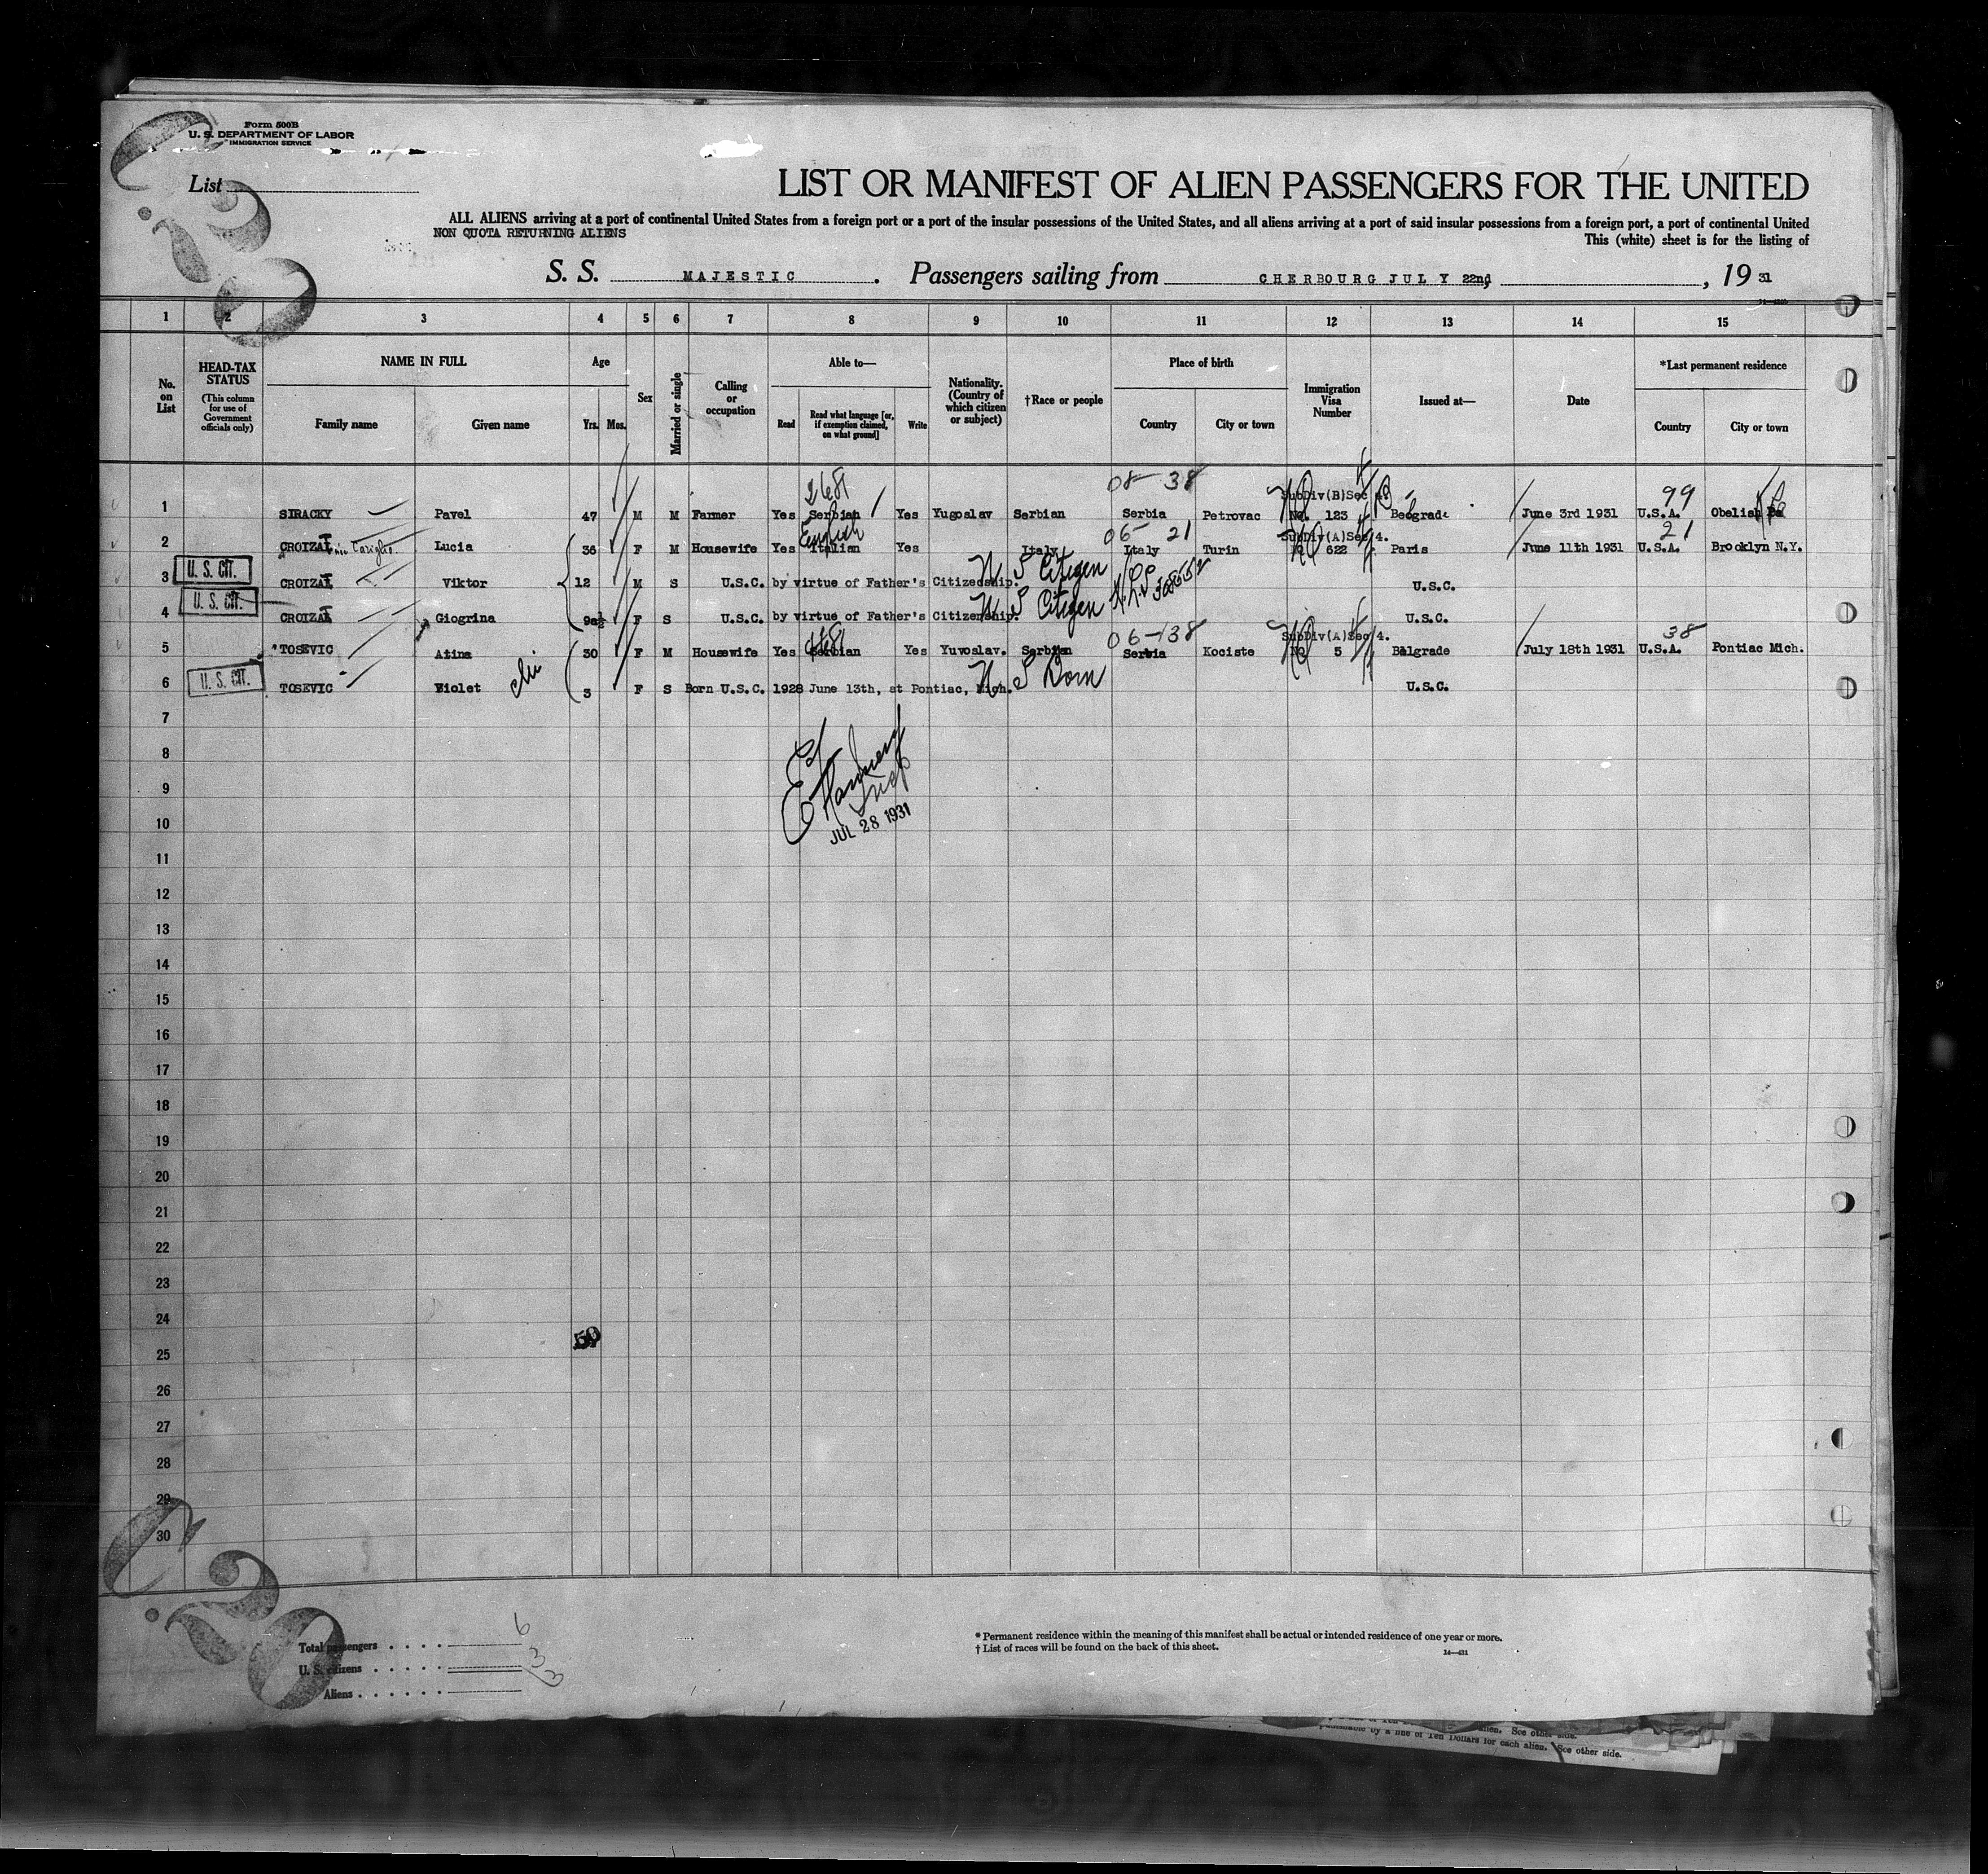 Form 500B
U. S. DEPARTMENT OF LABOR
IMMIGRATION SERVICE
List
LIST OR MANIFEST OF ALIEN PASSENGERS FOR THE UNITED
ALL ALIENS arriving at a port of continental United States from a foreign port or a port of the insular possessions of the United States, and all aliens arriving at a port of said insular possessions from a foreign port, a port of continental United
NON QUOTA RETURNING ALIENS
This (white) sheet is for the listing of
S. S. MAJESTIC. Passengers sailing from CHERBOURG JULY 22nd, 19 31
1 2 3 4 5 6 7 8 9 10 11 12 13 14 15
No. on List
HEAD-TAX STATUS
(This column for use of Government officials only)
NAME IN FULL
Family name Given name
Age
Yrs. Mos.
Sex
Married or single
Calling or occupation
Able to—
Read
Read what language [or, if exemption claimed, on what ground]
Write
Nationality. (Country of which citizen or subject)
†Race or people
Place of birth
Country City or town
Immigration Visa Number
Issued at—
Date
*Last permanent residence
Country City or town
08-38 99
SubDiv(B)Sec 4.
1 SIRACKY Pavel 47 M M Farmer Yes Serbian Yes Yugoslav Serbian Serbia Petrovac No. 123 Belgrade June 3rd 1931 U.S.A. Obelish Pa
English 06 21 SubDiv(A)Sec 4. 21
2 CROIZAT Lucia 36 F M Housewife Yes Italian Yes Italy Italy Turin 622 Paris June 11th 1931 U.S.A. Brooklyn N.Y.
3 U. S. CIT. CROIZAT Viktor 12 M S U.S.C. by virtue of Father's Citizenship. U S Citizen U.S.C.
4 U. S. CIT. CROIZAT Giogrina 9 F S U.S.C. by virtue of Father's Citizenship. U S Citizen U.S.C.
06-138 SubDiv(A)Sec 4. 38
5 TOSEVIC Atina 30 F M Housewife Yes Serbian Yes Yuvoslav. Serbian Serbia Kociste No 5 Belgrade July 18th 1931 U.S.A. Pontiac Mich.
6 U. S. CIT. TOSEVIC Violet 3 F S Born U.S.C. 1928 June 13th, at Pontiac, Mich. U S Born U.S.C.
7
8
9
10
JUL 28 1931
11
12
13
14
15
16
17
18
19
20
21
22
23
24
50
25
26
27
28
29
30
Total passengers 6
U. S. citizens 3
Aliens 3
* Permanent residence within the meaning of this manifest shall be actual or intended residence of one year or more.
† List of races will be found on the back of this sheet.
14—431
See other side.
punishable by a fine of Ten Dollars for each alien. See other side.